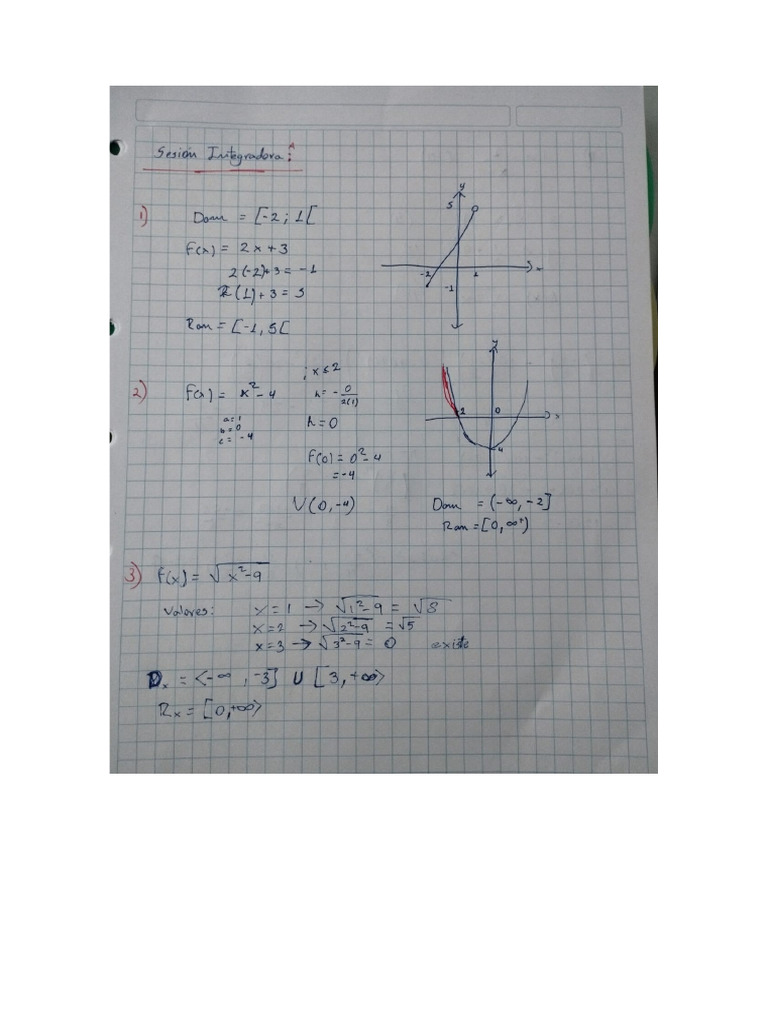 Sesión Integradora:
1) Dom = [-2 ; 1[
F(x) = 2x+3
2(-2)+3 = -1
2(1)+3 = 5
Ran = [-1, 5[
y
5
-2
1
x
-1
2) F(x) = x²-4 ; x≤2
a=1
b=0
c=-4
h = -0/2(1)
h=0
F(0) = 0²-4
= -4
V(0,-4)
y
2
0
x
-4
Dom = (-∞, -2]
Ran = [0, ∞⁺)
3) F(x) = √x²-9
Valores: x=1 → √1²-9 = √8
x=2 → √2²-9 = √5
x=3 → √3²-9 = 0 existe
Dx = <-∞, -3] U [3, +∞>
Rx = [0, +∞>